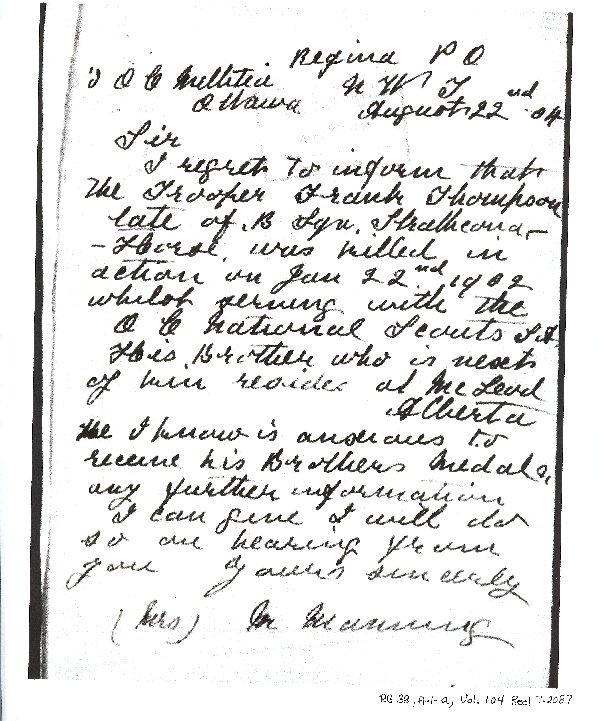 Regina P O
O C Millitia N W T
Ottawa August 22nd 04
Sir
I regret to inform that
the Trooper Frank Thompson
late of B Sqn. Strathcona-
-Horse, was killed in
action on Jan 22nd 1902
whilst serving with the
O C National Scouts S.A.
His Brother who is next
of kin resides at McLeod
Alberta
He I know is anxious to
receive his Brothers Medals,
any further information
I can give I will do
so on hearing from
you Yours sincerely
(Mrs) M Manning
RG 38, A-1-a, Vol. 104 Reel T-2087